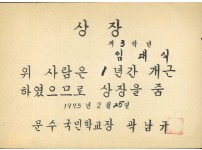 상장
제 3 학년
임 재 식
위 사람은 1년간 개근
하였으므로 상장을 줌
1993년 2월 25일
문수 국민학교장 곽남규